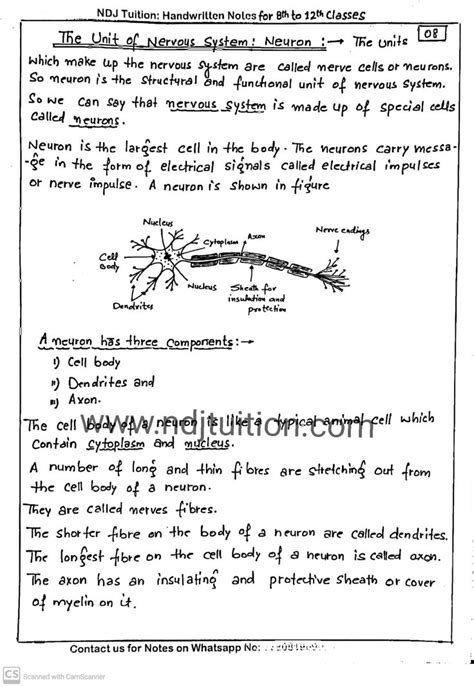 NDJ Tuition: Handwritten Notes for 8th to 12th Classes
08
The Unit of Nervous System: Neuron :→ The units
which make up the nervous system are called nerve cells or neurons.
So neuron is the structural and functional unit of nervous system.
So we can say that nervous system is made up of special cells
called neurons.
Neuron is the largest cell in the body. The neurons carry messa-
-ge in the form of electrical signals called electrical impulses
or nerve impulse. A neuron is shown in figure
Nucleus
Cytoplasm
Axon
Nerve endings
Cell
Body
Nucleus
Sheath for
insulation and
protection
Dendrites
A neuron has three components:→
i) Cell body
ii) Dendrites and
iii) Axon.
www.ndjtuition.com
The cell body of a neuron is like a typical animal cell which
contain cytoplasm and nucleus.
A number of long and thin fibres are stretching out from
the cell body of a neuron.
They are called nerves fibres.
The shorter fibre on the body of a neuron are called dendrites.
The longest fibre on the cell body of a neuron is called axon.
The axon has an insulating and protective sheath or cover
of myelin on it.
Contact us for Notes on Whatsapp No:
CS Scanned with CamScanner